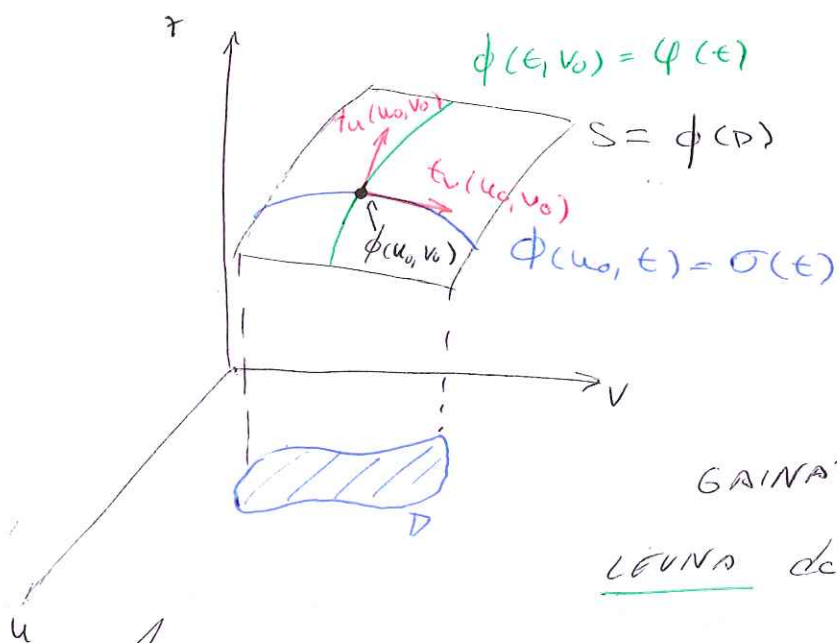 z
ϕ(t, v₀) = φ(t)
t_u(u₀, v₀)
S = ϕ(D)
t_v(u₀, v₀)
ϕ(u₀, v₀)
ϕ(u₀, t) = σ(t)
v
D
GAINA
LEUNA da
u